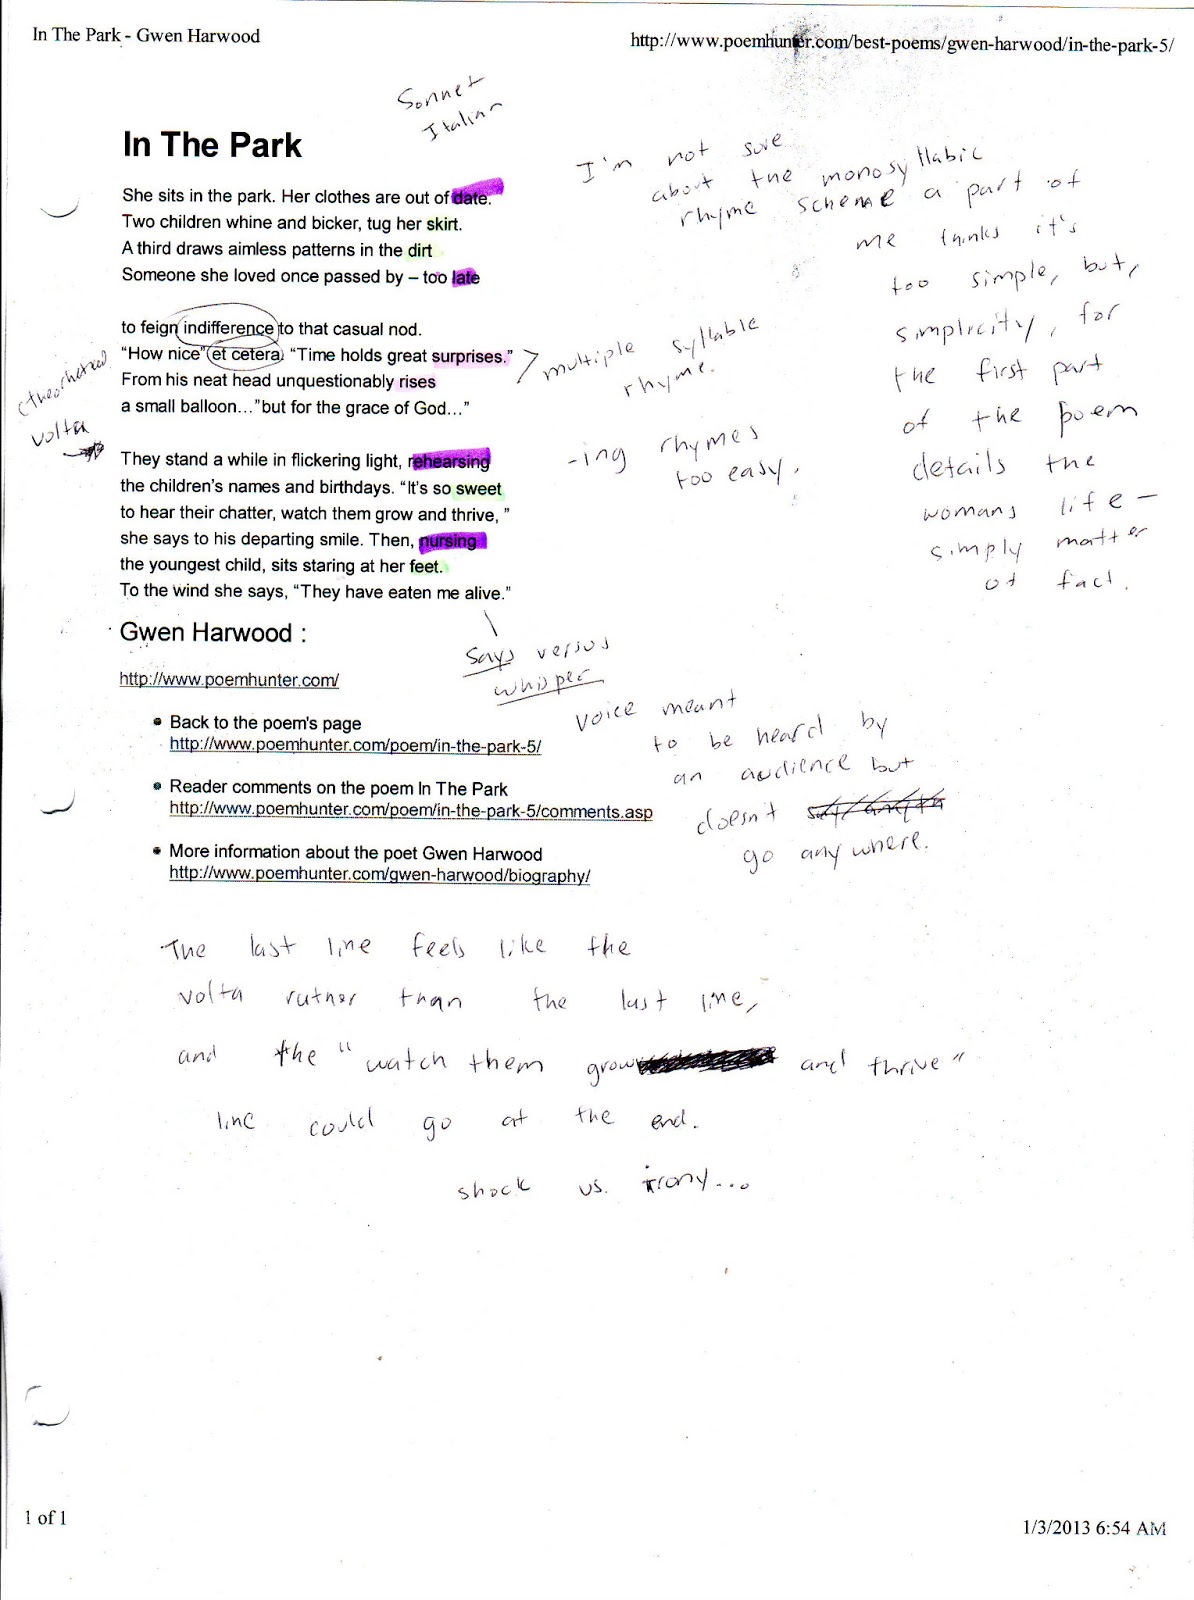 In The Park - Gwen Harwood
http://www.poemhunter.com/best-poems/gwen-harwood/in-the-park-5/
Sonnet
Italian
In The Park
She sits in the park. Her clothes are out of date.
Two children whine and bicker, tug her skirt.
A third draws aimless patterns in the dirt
Someone she loved once passed by – too late
to feign indifference to that casual nod.
“How nice” et cetera. “Time holds great surprises.”
From his neat head unquestionably rises
a small balloon…”but for the grace of God…”
They stand a while in flickering light, rehearsing
the children’s names and birthdays. “It's so sweet
to hear their chatter, watch them grow and thrive, ”
she says to his departing smile. Then, nursing
the youngest child, sits staring at her feet.
To the wind she says, “They have eaten me alive.”
I'm not sure
about the monosyllabic
rhyme scheme a part of
me thinks it's
too simple, but,
simplicity, for
the first part
of the poem
details the
womans life –
simply matter
of fact.
multiple syllable
rhyme.
volta
-ing rhymes
too easy.
Gwen Harwood :
http://www.poemhunter.com/
says versus
whisper
voice meant
to be heard by
an audience but
doesn't
go anywhere.
Back to the poem's page
http://www.poemhunter.com/poem/in-the-park-5/
Reader comments on the poem In The Park
http://www.poemhunter.com/poem/in-the-park-5/comments.asp
More information about the poet Gwen Harwood
http://www.poemhunter.com/gwen-harwood/biography/
The last line feels like the
volta ruther than the last line,
and the "watch them grow and thrive"
line could go at the end.
shock vs. irony...
1 of 1
1/3/2013 6:54 AM